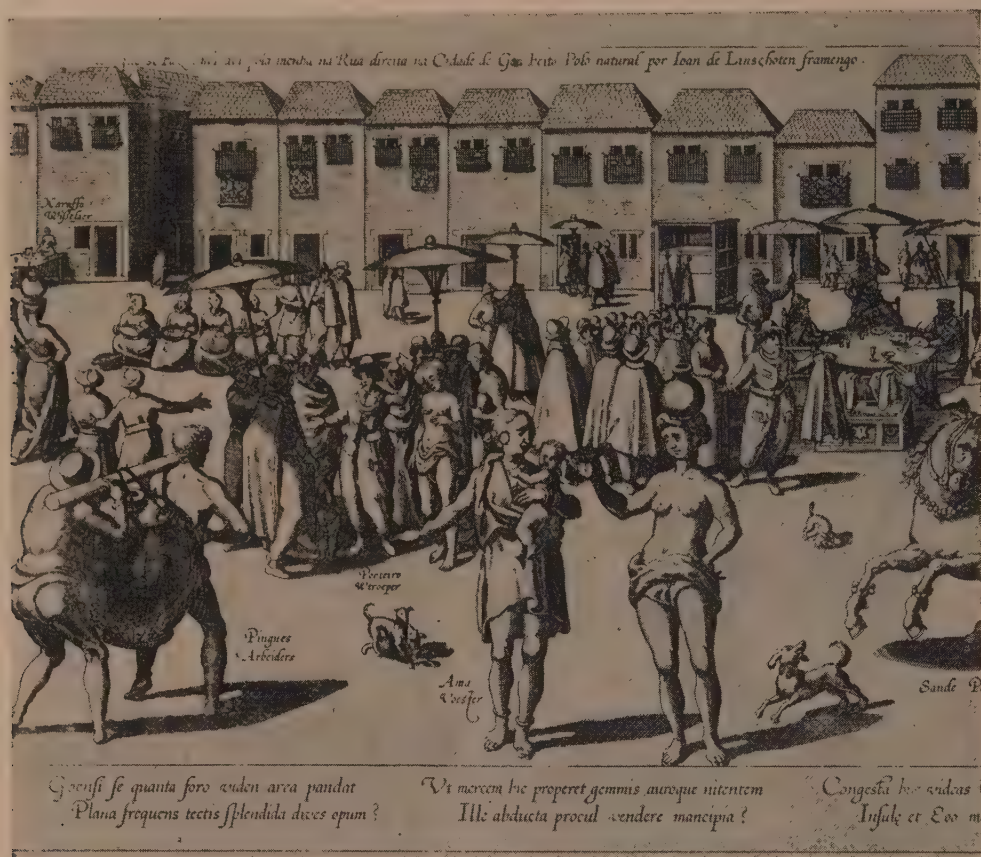 pola menha na Rua direita na Cidade de Goa feito Polo natural por Ioan de Linschoten framengo.
Pingues
Arbeiders
Porteiro
Wtroeper
Ama
Voester
Sande
Goensi se quanta foro viden area pandat
Plana frequens tectis splendida dives opum?
Vt mercem hic properet gemmis auroque nitentem
Ille abducta procul vendere mancipia?
Congesta hic videas
Insulę et Eoo